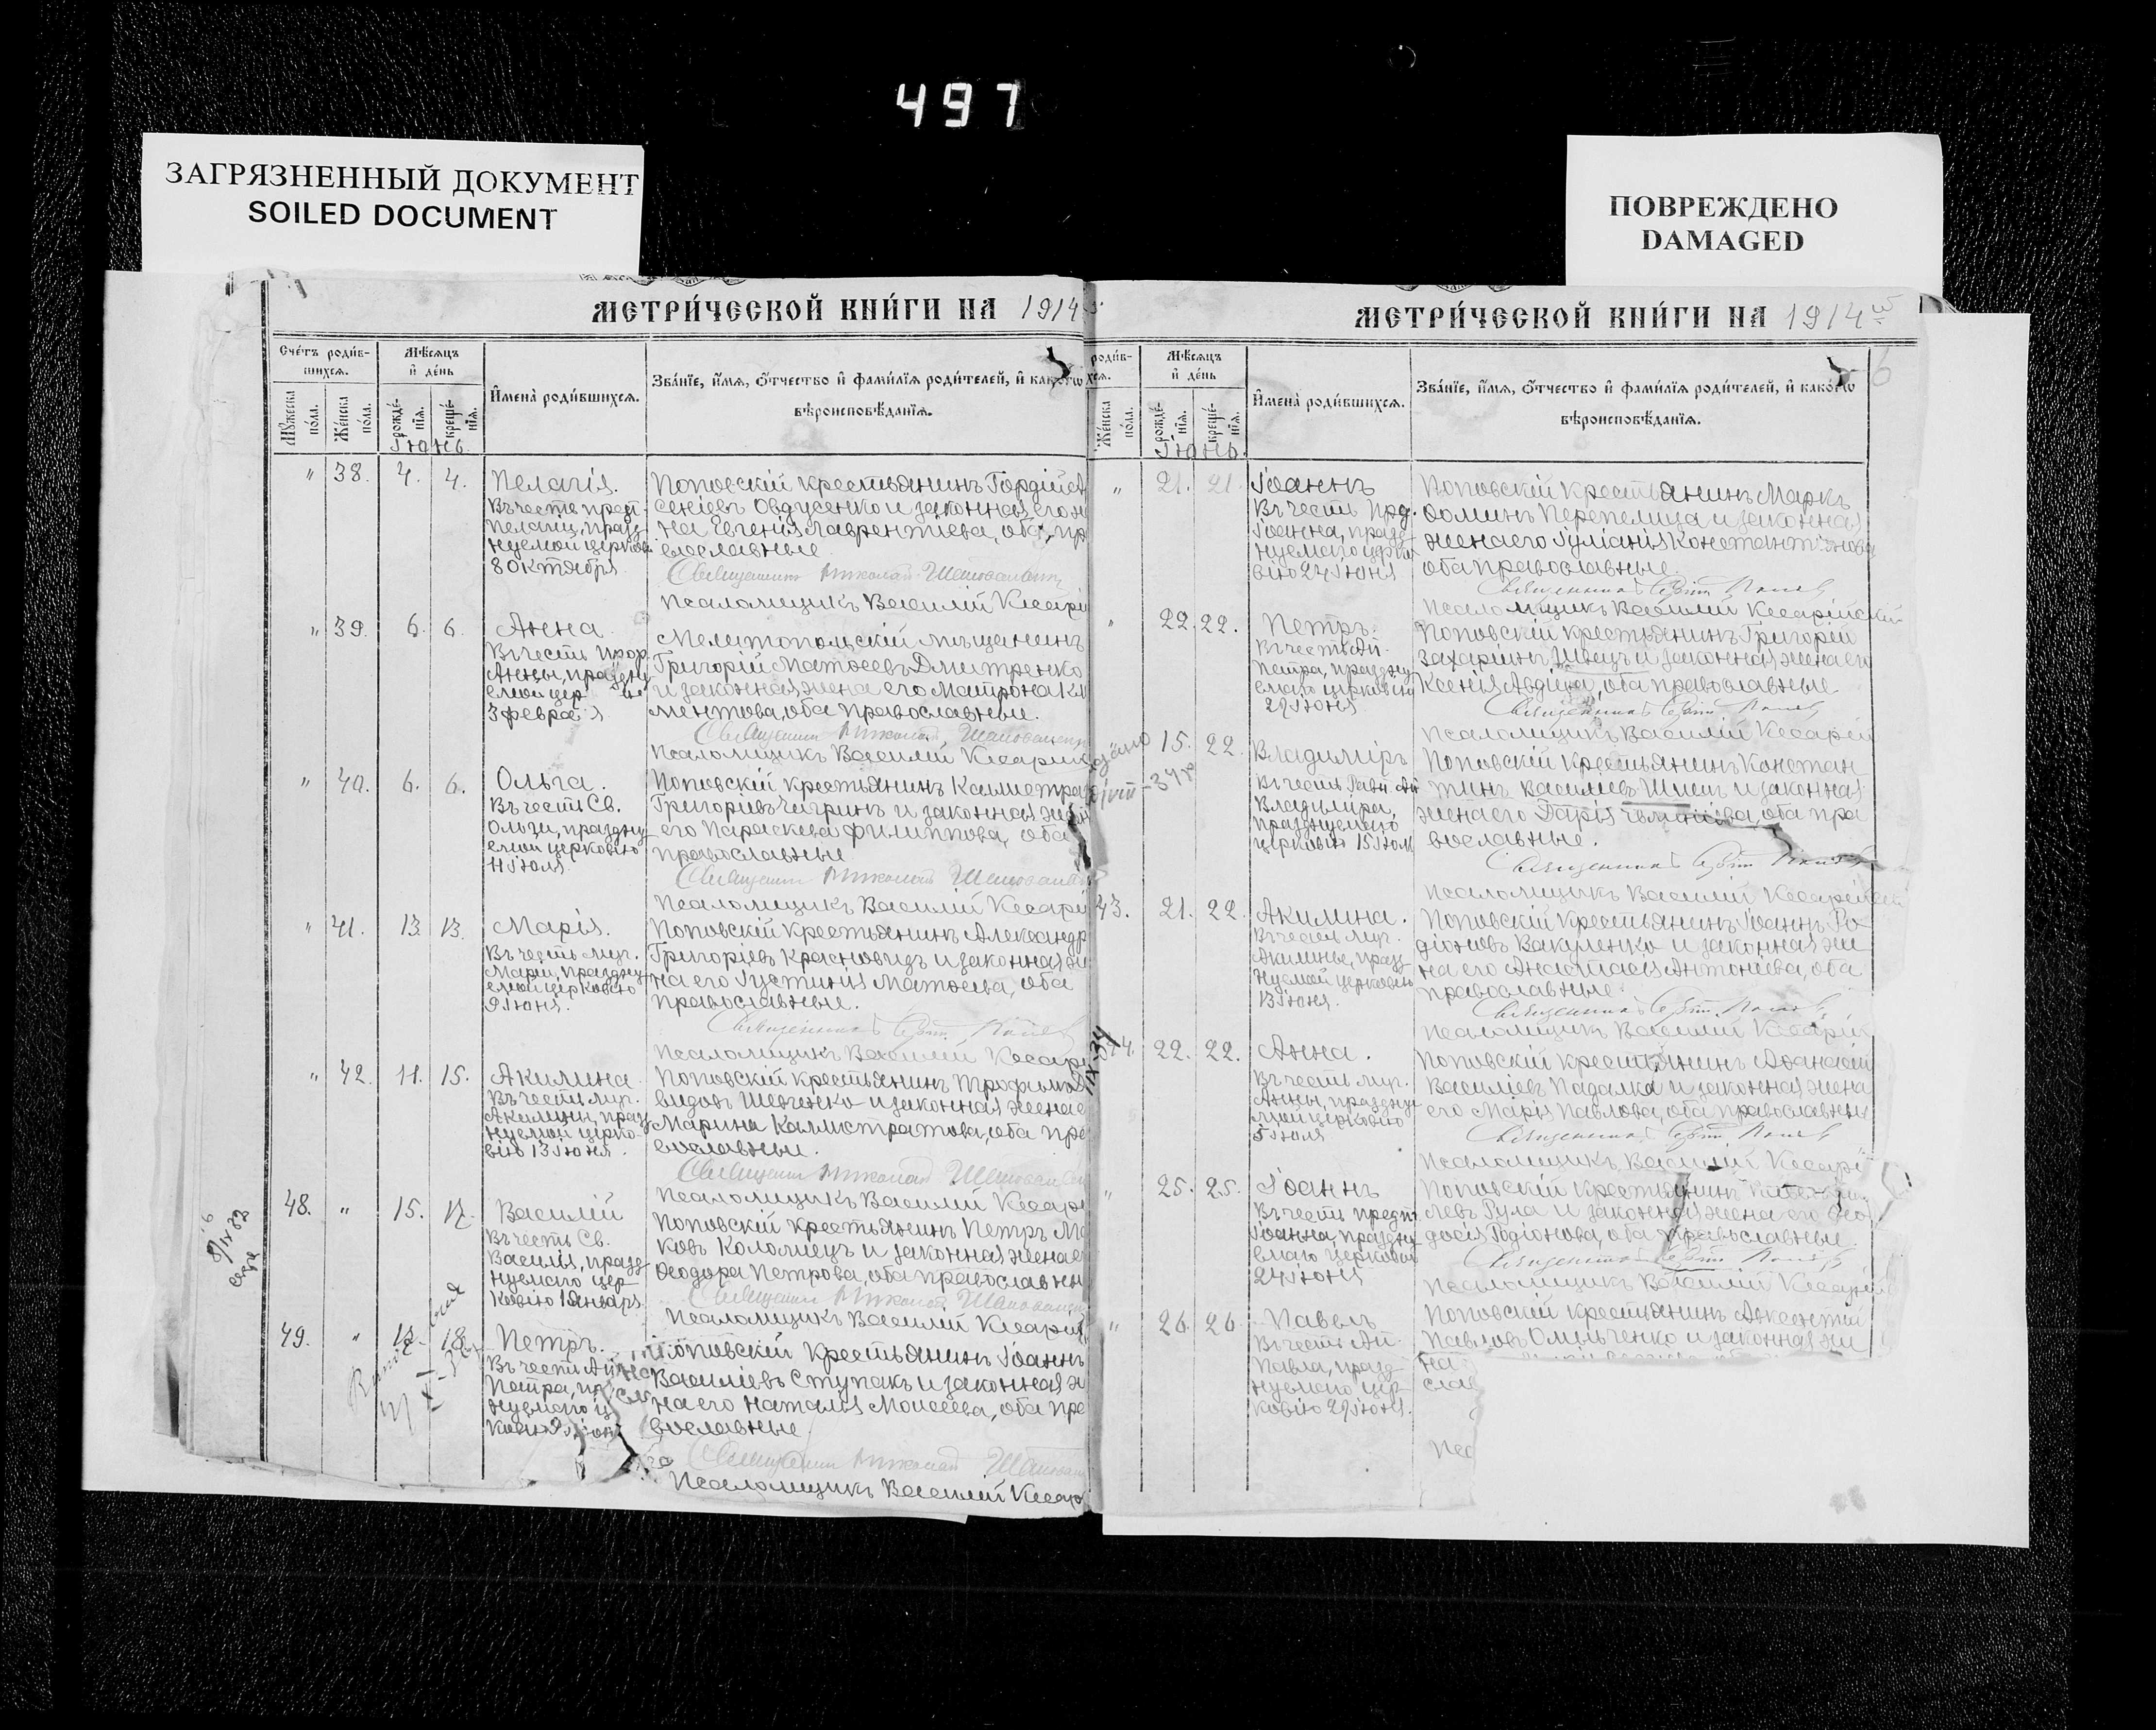 497
ЗАГРЯЗНЕННЫЙ ДОКУМЕНТ
SOILED DOCUMENT
ПОВРЕЖДЕНО
DAMAGED
МЕТРИ́ЧЕСКОЙ КНИ́ГИ НА 1914
Сче́тъ роди́в-
шихся.
Мѣ́сяцъ
и҆ де́нь
Мꙋ́жеска по́ла.
Же́нска по́ла.
рожде́-
нїѧ.
креще́-
нїѧ.
И҆мена̀ роди́вшихся.
Зва́нїе, и҆́мѧ, ѻ҆́тчество и҆ фами́лїѧ роди́телей, и҆ како́гѡ
вѣроисповѣ́данїѧ.
Іюнь.
" 38. 4. 4. Пелагія.
Въ честь преп.
Пелагіи, празд-
нуемой церковію
8 октября
Поповскій крестьянинъ Гордій А
сеніевъ Овдусенко и законная его ж
на Евгенія Лаврентіева, оба пр
вославные
Священникъ Николай Шаповал
Псаломщикъ Василій Кесарі
" 39. 6. 6. Анна.
Въ честь прор.
Анны, праздну
емой цер
3 февра я
Мелитопольскій мѣщанинъ
Григорій Матѳеевъ Дмитренко
и законная жена его Матрона Кли
ментова, оба православные.
Священникъ Николай Шаповал
Псаломщикъ Василій Кесарі
" 40. 6. 6. Ольга.
Въ честь Св.
Ольги, праздну
емой церковію
11 іюля
Поповскій крестьянинъ Каллистра
Григорьевъ Чигринъ и законная жен
его Параскева Филиппова, оба
православные
Священникъ Николай Шаповал
Псаломщикъ Василій Кесарі
" 41. 13. 13. Марія.
Въ честь муч.
Маріи, праздну
емой церковію
9 іюня.
Поповскій крестьянинъ Александр
Григорьевъ Красновидъ и законная же
на его Іустинія Матѳеева, оба
православные.
Псаломщикъ Василій Кесарі
" 42. 11. 15. Акилина
Въ честь муч.
Акилины, празд
нуемой церко-
вію 13 іюня.
Поповскій крестьянинъ Трофимъ Да
видовъ Шевченко и законная жена е
Марина Каллистратова, оба пра
вославные.
Священникъ Николай Шаповал
Псаломщикъ Василій Кесарі
48. " 15. 17. Василій
Въ честь Св.
Василія, празд
нуемаго цер-
ковію 1 января
Поповскій крестьянинъ Петръ Ма
ковъ Коломіецъ и законная жена ег
Ѳеодора Петрова, оба православны
Священникъ Николай Шаповал
Псаломщикъ Василій Кесарі
49. " 12. 18. Петръ.
Въ честь Ап
Петра, пр
нуемаго ц
ковію
Поповскій крестьянинъ Іоаннъ
Василіевъ Ступакъ и законная ж
на его Наталія Моисеева, оба пра
вославные.
Священникъ Николай Шаповал
Псаломщикъ Василій Кесарі
МЕТРИ́ЧЕСКОЙ КНИ́ГИ НА 1914
6
роди́в-
хся.
Мѣ́сяцъ
и҆ де́нь
Же́нска по́ла.
рожде́-
нїѧ.
креще́-
нїѧ.
И҆мена̀ роди́вшихся.
Зва́нїе, и҆́мѧ, ѻ҆́тчество и҆ фами́лїѧ роди́телей, и҆ како́гѡ
вѣроисповѣ́данїѧ.
Іюнь.
" 21. 21. Іоаннъ
Въ честь Прд.
Іоанна, празд-
нуемаго церко
вію 24 іюня
Поповскій крестьянинъ Маркъ
Ѳоминъ Перепелица и законная
жена его Іуліанія Константинова
оба православные.
Псаломщикъ Василій Кесарійскій
" 22. 22. Петръ.
Въ честь Ап.
Петра, праздну
емаго церковію
29 іюня
Поповскій крестьянинъ Григорій
Захаріинъ Швецъ и законная жена его
Ксенія Авдіева, оба православные
Псаломщикъ Василій Кесарій
15. 22. Владиміръ
Въ честь Равн. Ап
Владиміра,
празднуемаго
церковію 15 іюля
Поповскій крестьянинъ Констан
тинъ Василіевъ Швецъ и законная
жена его Дарія, оба пра
вославные.
Псаломщикъ Василій Кесарійскій
43. 21. 22. Акилина.
Въ честь муч.
Акилины, празд
нуемой церковію
13 іюня.
Поповскій крестьянинъ Іоаннъ Ро
діоновъ Вакуленко и законная же
на его Анастасія Антоніева, оба
православные.
Псаломщикъ Василій Кесарій
44. 22. 22. Анна.
Въ честь муч.
Анны, праздну
мой церковію
5 іюля
Поповскій крестьянинъ Аѳанасій
Василіевъ Падалка и законная жена
его Марія Павлова, оба православные
Псаломщикъ Василій Кесарі
" 25. 25. Іоаннъ
Въ честь Предт.
Іоанна, праздну
емаго церковію
24 іюня
Поповскій крестьянинъ
левъ Гула и законная жена его Ѳео
досія Родіонова, оба православные.
Псаломщикъ Василій Кесарій
" 26. 26. Павелъ
Въ честь Ап.
Павла, празд-
нуемаго цер-
ковію 29 іюня.
Поповскій крестьянинъ Авксентій
Павловъ Омельченко и законная же
на
слав
Пса